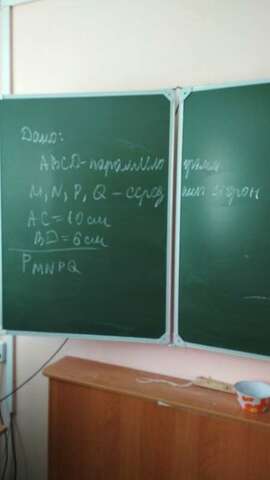 Дано:
ABCD - параллелограмм
M, N, P, Q - середины сторон
AC = 10 см
BD = 6 см
P MNPQ